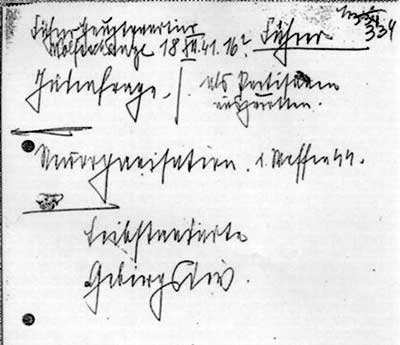 334
Führerhauptquartier
Wolfschanze 18.XII.41. 16h Führer
Judenfrage. | als Partisanen
auszurotten.
Neuorganisation d. Waffen SS.
Leibstandarte
Gebirgsdiv.